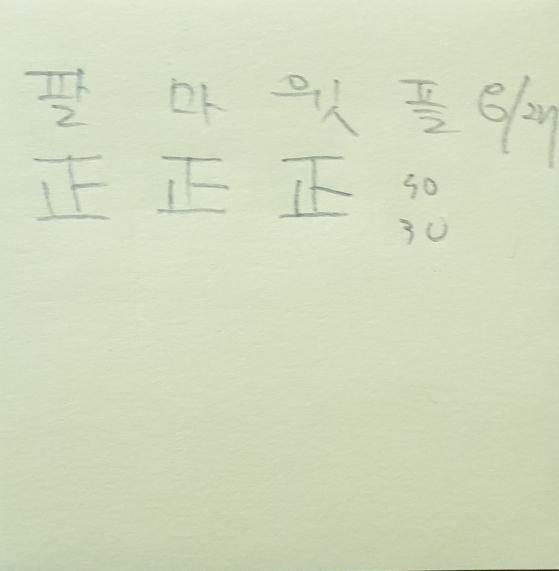 팔 마 윗 플 6/27
正 正 正 50
30